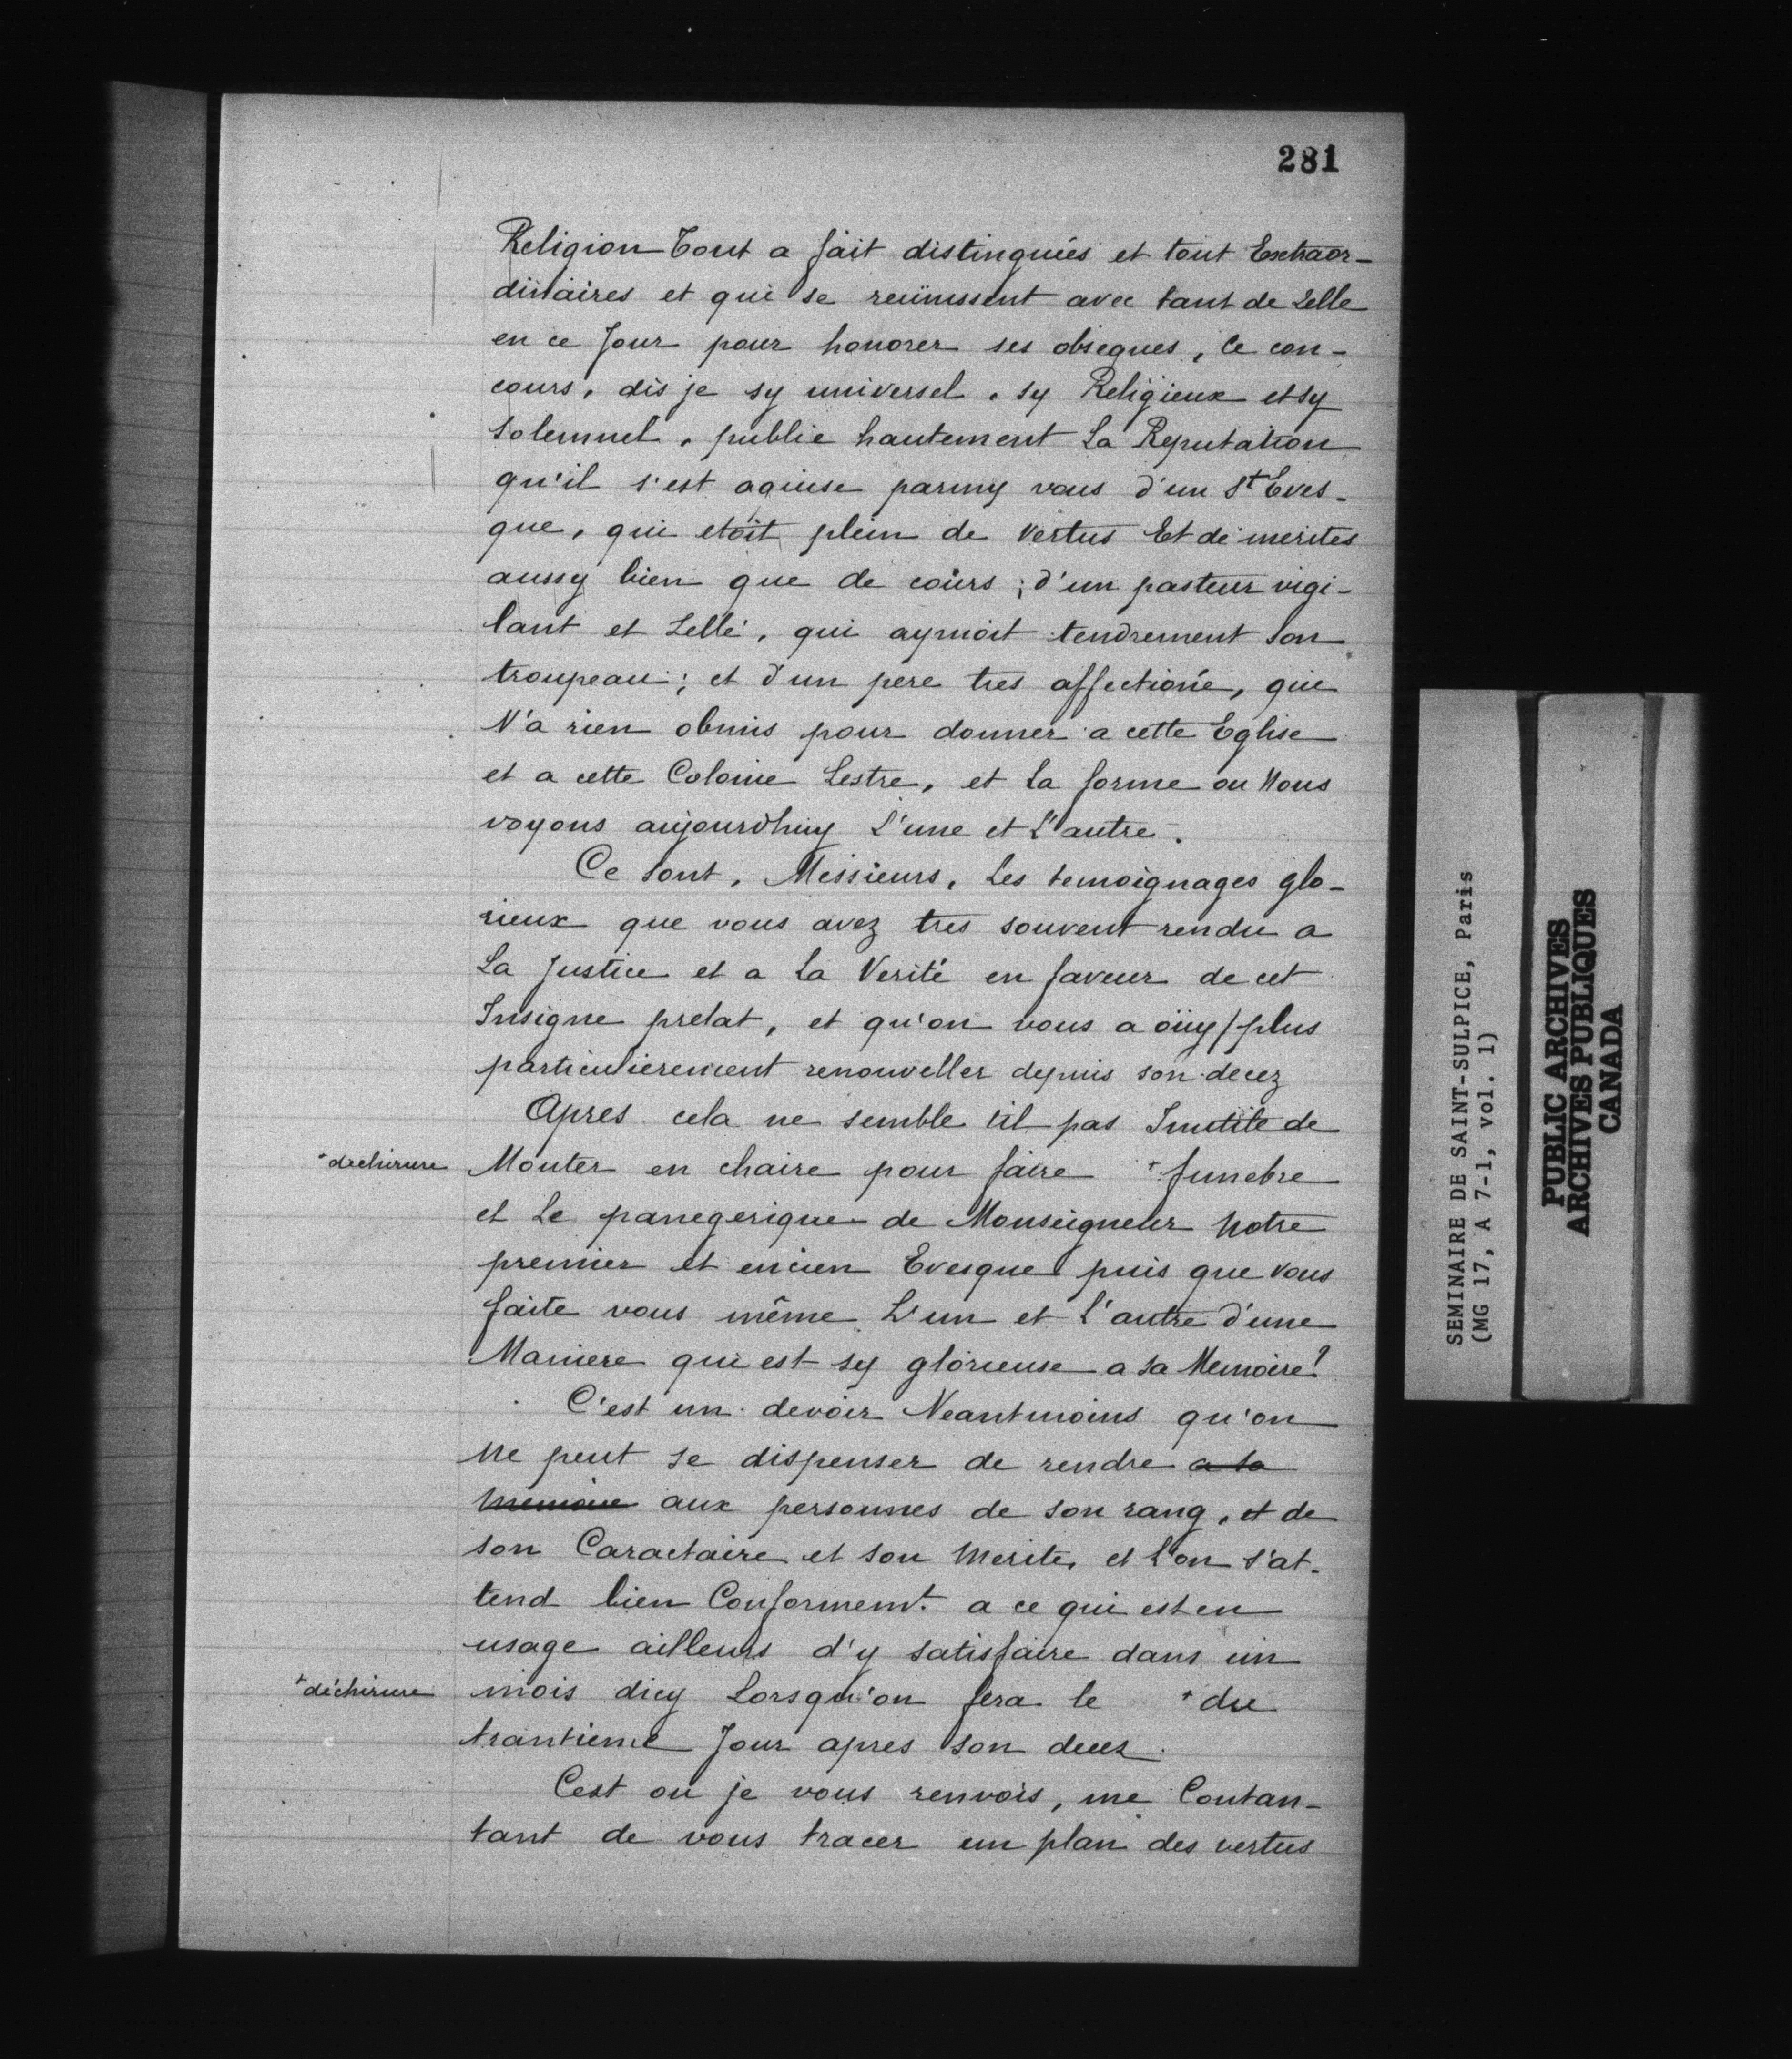 281
Religion Tout a fait distinguées et tout Extraor-
dinaires et qui se reünissent avec tant de zelle
en ce Jour pour honorer ses obseques, Ce con-
cours, dis je sy universel, sy Religieux et sy
solemnel, publie hautement La Reputation
qu'il s'est aquise parmy vous d'un St Eves-
que, qui etoit plein de vertus Et de merites
aussy bien que de coürs; d'un pasteur vigi-
lant et Zellé, qui aymoit tendrement Son
troupeau; et d'un pere tres affectioné, qui
N'a rien obmis pour donner a cette Eglise
et a cette Colonie Lestre, et la forme ou Nous
voyons aujourdhuy L'une et L'autre.
Ce sont, Messieurs, Les temoignages glo-
rieux que vous avez tres souvent rendu a
La Justice et a la Verité en faveur de cet
Insigne prelat, et qu'on vous a oüy/plus
particulierement renouveller depuis son decez
Apres cela ne semble til pas Inutile de
+déchirure Monter en chaire pour faire + funebre
et Le panegerique de Monseigneur Notre
premier et encien Evesque puis que vous
faite vous même L'un et L'autre d'une
Maniere qui est sy glorieuse a sa Memoire?
C'est un devoir Neantmoins qu'on
Ne peut se dispenser de rendre a sa
Memoire aux personnes de son rang, et de
son Caractaire et son Merite, et L'on s'at-
tend bien Conformemt. a ce qui est en
usage ailleurs d'y satisfaire dans un
+déchirure mois dicy Lorsqu'on fera le + du
trantieme Jour apres son decez.
Cest ou je vous renvois, me Contan-
tant de vous tracer un plan des vertus
SEMINAIRE DE SAINT-SULPICE, Paris
(MG 17, A 7-1, vol. 1)
PUBLIC ARCHIVES
ARCHIVES PUBLIQUES
CANADA